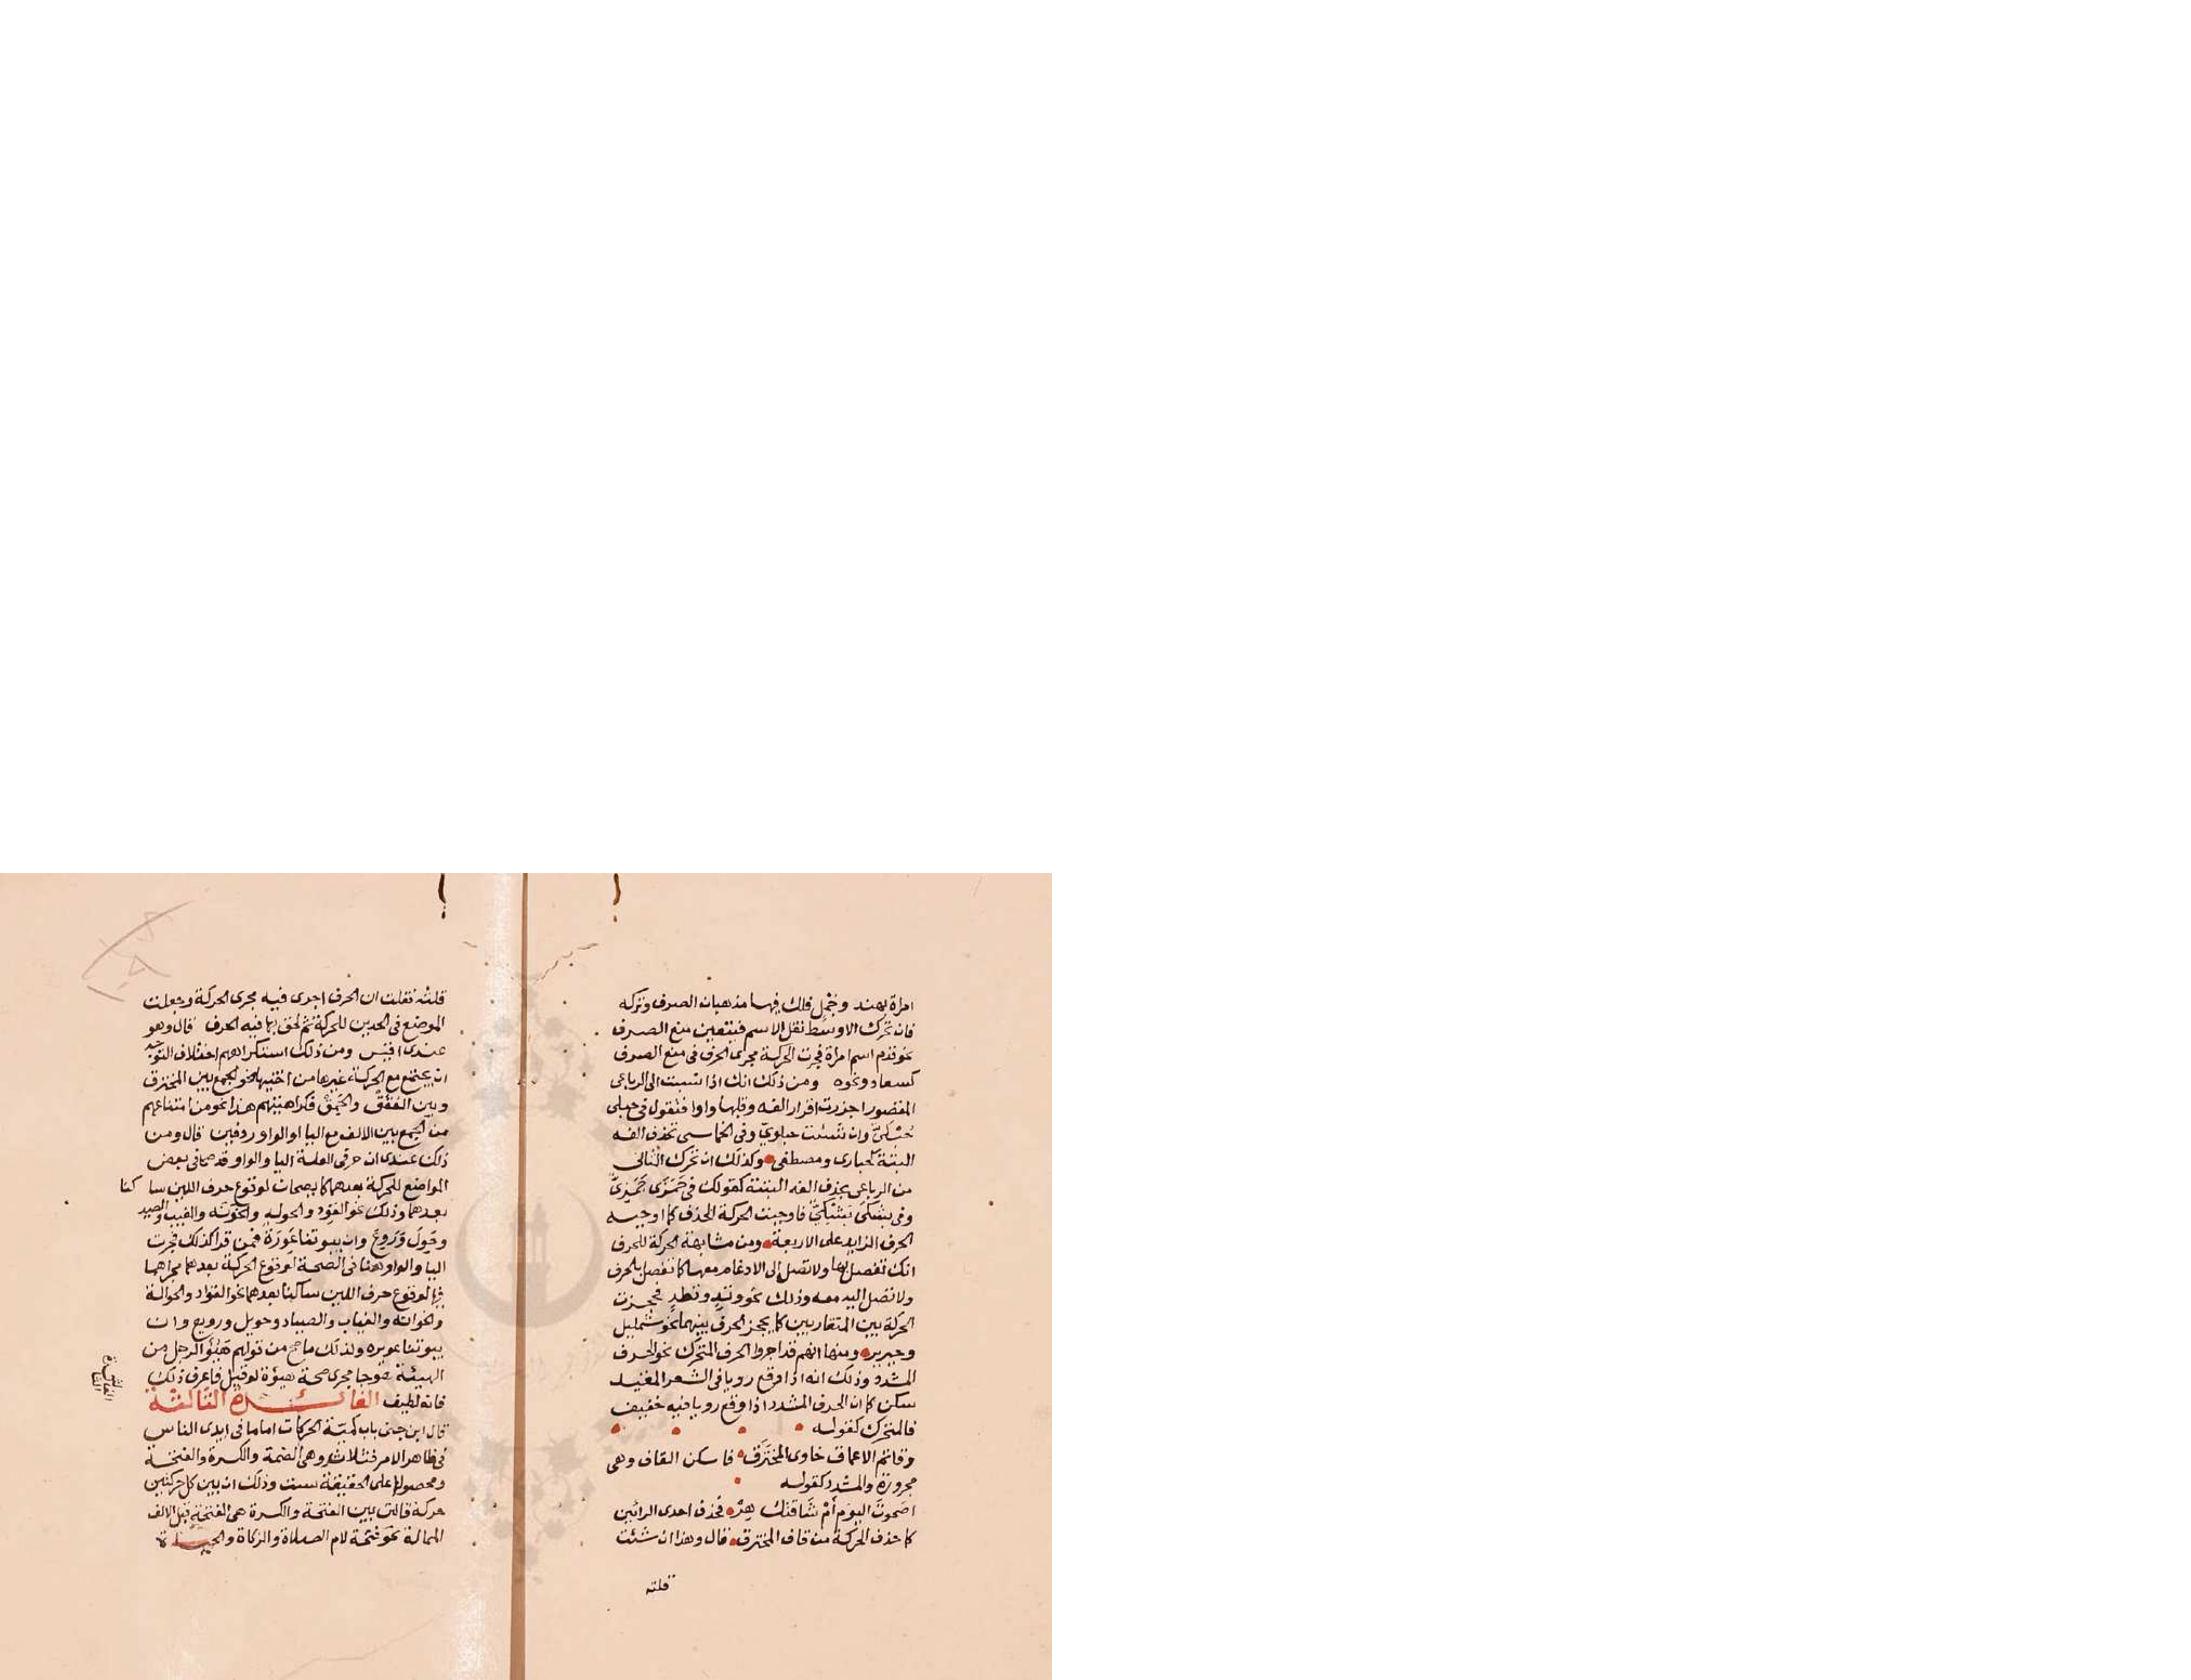 امراة بهند وجمل فلك فيهما مذهبان الصرف وتركه
فان تحرك الاوسط ثقل الاسم فيتعين منع الصرف
نحو قدم اسم امراة فجرت الحركة مجرى الحرف في منع الصرف
كسعاد ونحوه ومن ذلك انك اذا نسبت الى الرباعى
المقصور اجزرت اقرار الفه وقلبها واوا فتقول في حبلى
حُبْلىّ وان شئت حبلوىّ وفى الخماسى تحذف الفه
البتة كحبارى ومصطفى وكذلك ان تحرك الثانى
من الرباعى بحذف الفه البتة كقولك فى جَمَزَى جَمَزِىّ
وفى بشكَى بَشَكِىّ فاوجبت الحركة الحذف كما اوجبه
الحرف الزايد على الاربعة ومن مشابهة الحركة للحرف
انك تفصل بها ولا تصل الى الادغام معها كما تفصل بالحرف
ولا تصل اليه معه وذلك نحو وتد وتطد فحجزت
الحركة بين المتقاربين كما يحجز الحرف بينهما نحو شمليل
وحبربر ومنها انهم قد اجروا الحرف المتحرك نحو الحرف
المشدد وذلك انه اذا وقع رويا فى الشعر المقيد
سكن كما ان الحرف المشدد اذا وقع رويا فيه خفيف
فالمتحرك كقوله
وقاتم الاعماق خاوى المخترَق فاسكن القاف وهى
مجرورة والمشدد كقوله
اصحوتَ اليوم أمْ شَاقتك هِرْ فحذف احدى الرائين
كما حذف الحركة من قاف المخترق قال وهذا ان شئت
قلته
قلته نقلت ان الحرف اجرى فيه مجرى الحركة وجعلت
الموضع فى الحدين للحركة ثم لحق بها فيه الحرف قال وهو
عندى اقيس ومن ذلك استنكراهم اختلاف التوجيه
ان يجتمع مع الحركة غيرها من اختيها نحو الجمع بين المخترق
وبين العُقُقْ والحَمِقْ فكراهيتهم هذا نحو من امتناعهم
من الجمع بين الالف مع اليا او الواو ردفين قال ومن
ذلك عندى ان حرفى العلة اليا والواو قد صحا فى بعض
المواضع للحركة بعدهما كما يصحان لوقوع حرف اللين ساكنا
بعدهما وذلك نحو القود والحوله والخونه والغيب والصيد
وحَوِلَ وَرَوِعَ وان بيوتنا عَوِرَةٌ فمن قرا كذلك فجرت
اليا والواو هنا فى الصحة لوقوع الحركة بعدهما مجراهما
فيها لوقوع حرف اللين ساكنا بعدهما نحو القواد والحوالة
والخوانة والغياب والصياد وحويل ورويع وان
بيوتنا عويره ولذلك ما صح من قولهم هَيُؤَ الرجل من
الهيئة هو جا مجرى صحة هيوءة لو قيل فاعرف ذلك
فانه لطيف الفائدة الثالثة
قال ابن جنى باب كمية الحركات اما ما فى ايدى الناس
فى ظاهر الامر فثلاث وهى الضمة والكسرة والفتحة
ومحصولها على الحقيقة ست وذلك ان بين كل حركتين
حركة فالتى بين الفتحة والكسرة هى الفتحة قبل الالف
الممالة نحو فتحة لام الصلاة والزكاة والحياة
الفائدة الثالثة